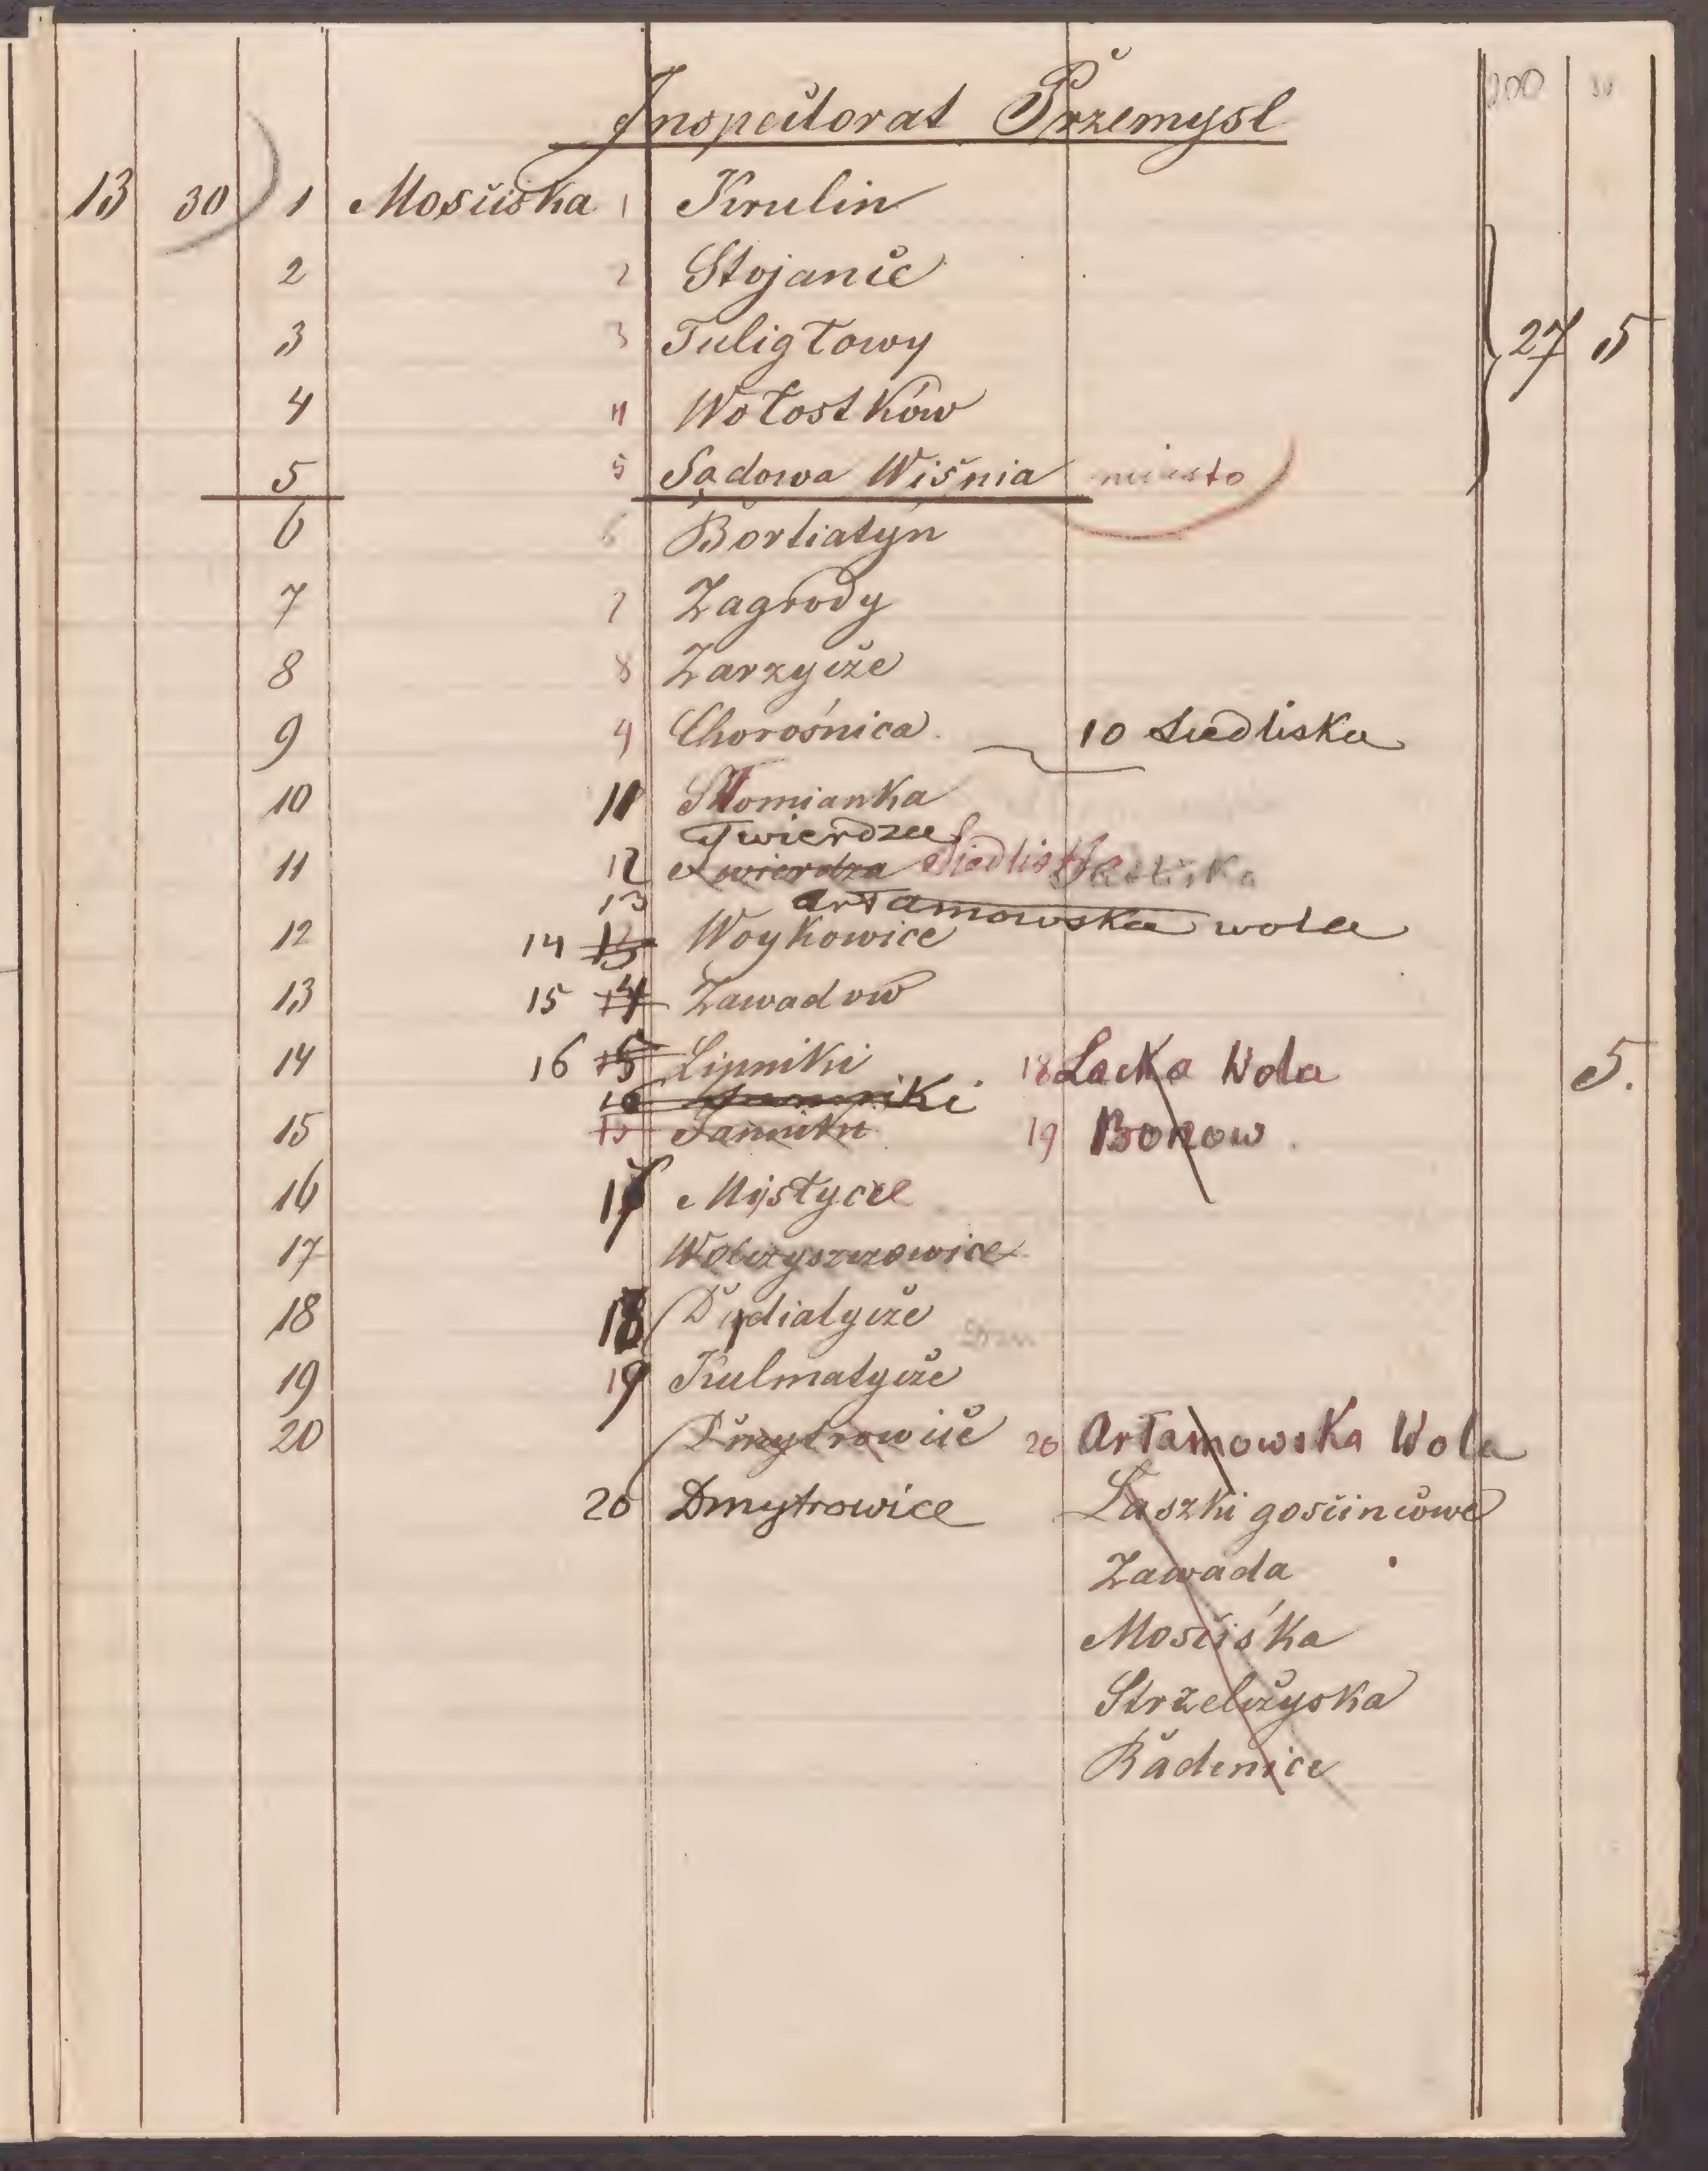 Inspecitorat Przemysl 200
13 30 1 Mosciska 1 Krulin
2 2 Stojanic
3 3 Tuligłowy 27 5
4 4 Wołostków
5 5 Sądowa Wiśnia miasto
6 6 Bortiatyn
7 7 Zagrody
8 8 Zarzycze
9 9 Chorośnica 10 Siedliska
10 11 Słomianka
Twierdza
11 12 Twierdza Siedliska Siedliska
13 Artamowska wola
12 14 13 Woykowice
13 15 14 Zawadow
14 16 15 Lipniki 18 Lacka Wola 5.
16
15 Janniki 19 Bonow
16 17 Mistycze
17 Wołczyszczowice
18 18 Dydiatycze
19 19 Kulmatycze
20 Dmytrowice 20 Artamowska Wola
20 Dmytrowice Laszki goscincowe
Zawada
Mosciska
Strzelczyska
Radenice